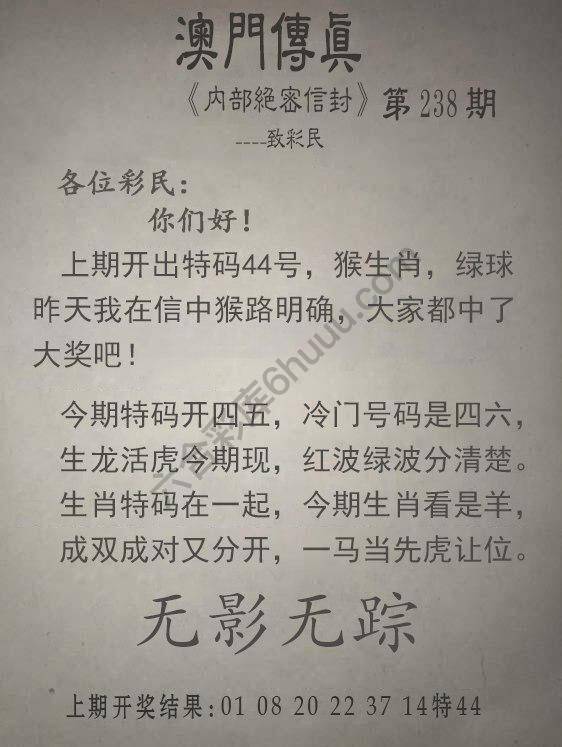 澳門傳眞
《内部絕密信封》第238期
----致彩民
各位彩民：
你们好！
上期开出特码44号，猴生肖，绿球
昨天我在信中猴路明确，大家都中了
大奖吧！
今期特码开四五，冷门号码是四六，
生龙活虎今期现，红波绿波分清楚。
生肖特码在一起，今期生肖看是羊，
成双成对又分开，一马当先虎让位。
无影无踪
上期开奖结果：01 08 20 22 37 14特44
六合彩库6huuu.com